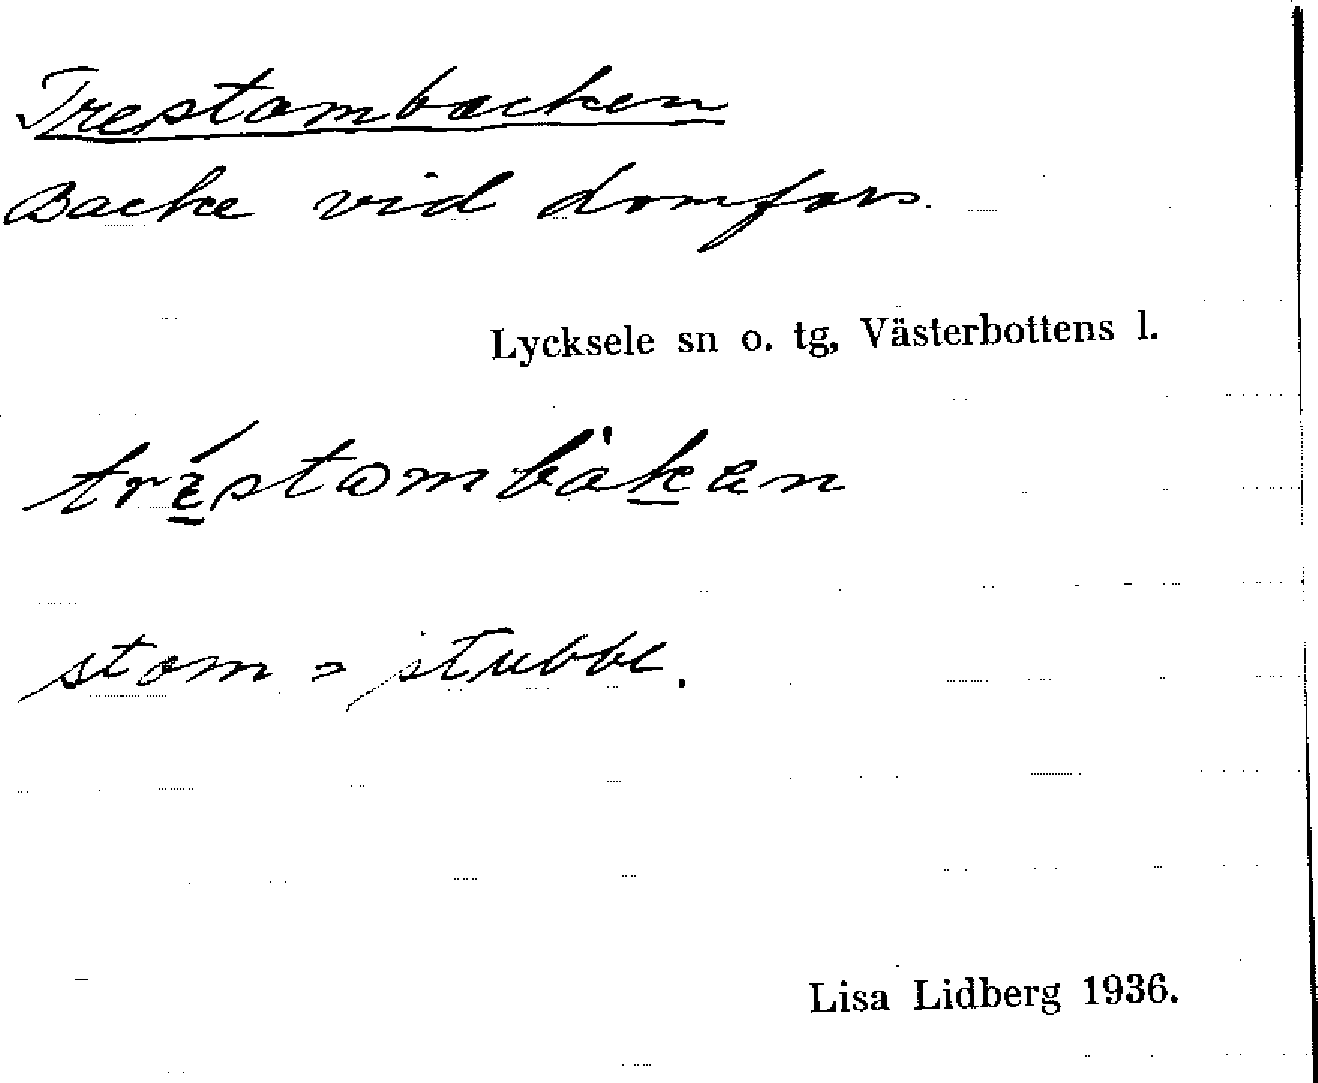 Trestombacken
Backe vid Lomfors.
Lycksele sn o. tg, Västerbottens l.
tréstombàkan
stom = stubbe.
Lisa Lidberg 1936.